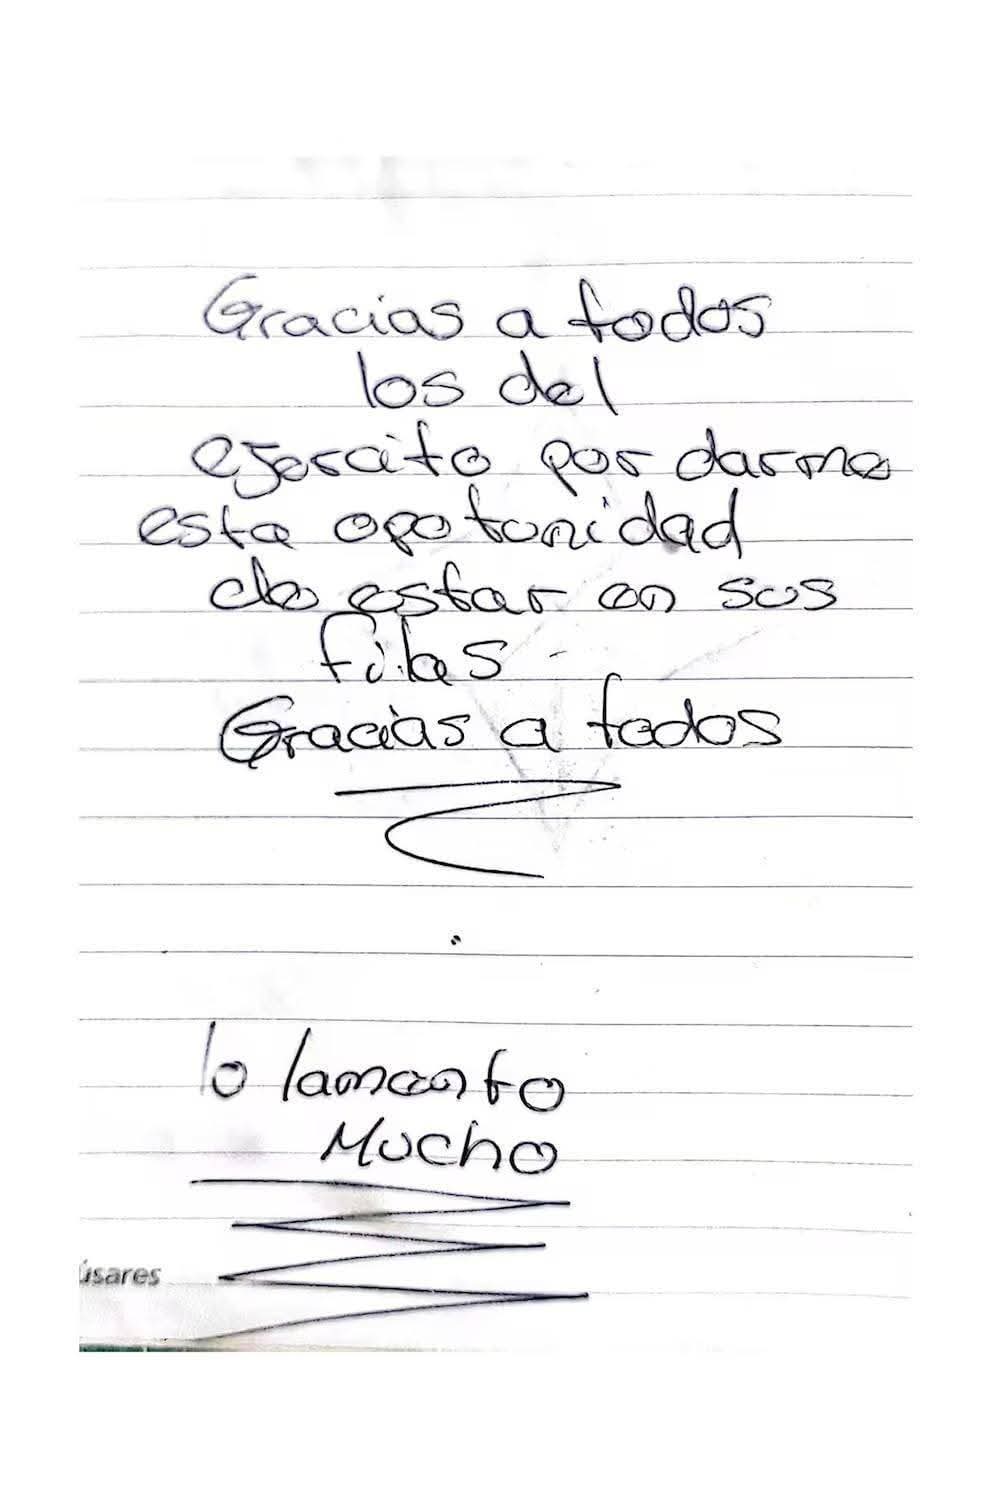 Gracias a todos
los del
ejercito por darme
esta opotunidad
de estar en sus
filas
Gracias a todos
lo lamento
Mucho
úsares